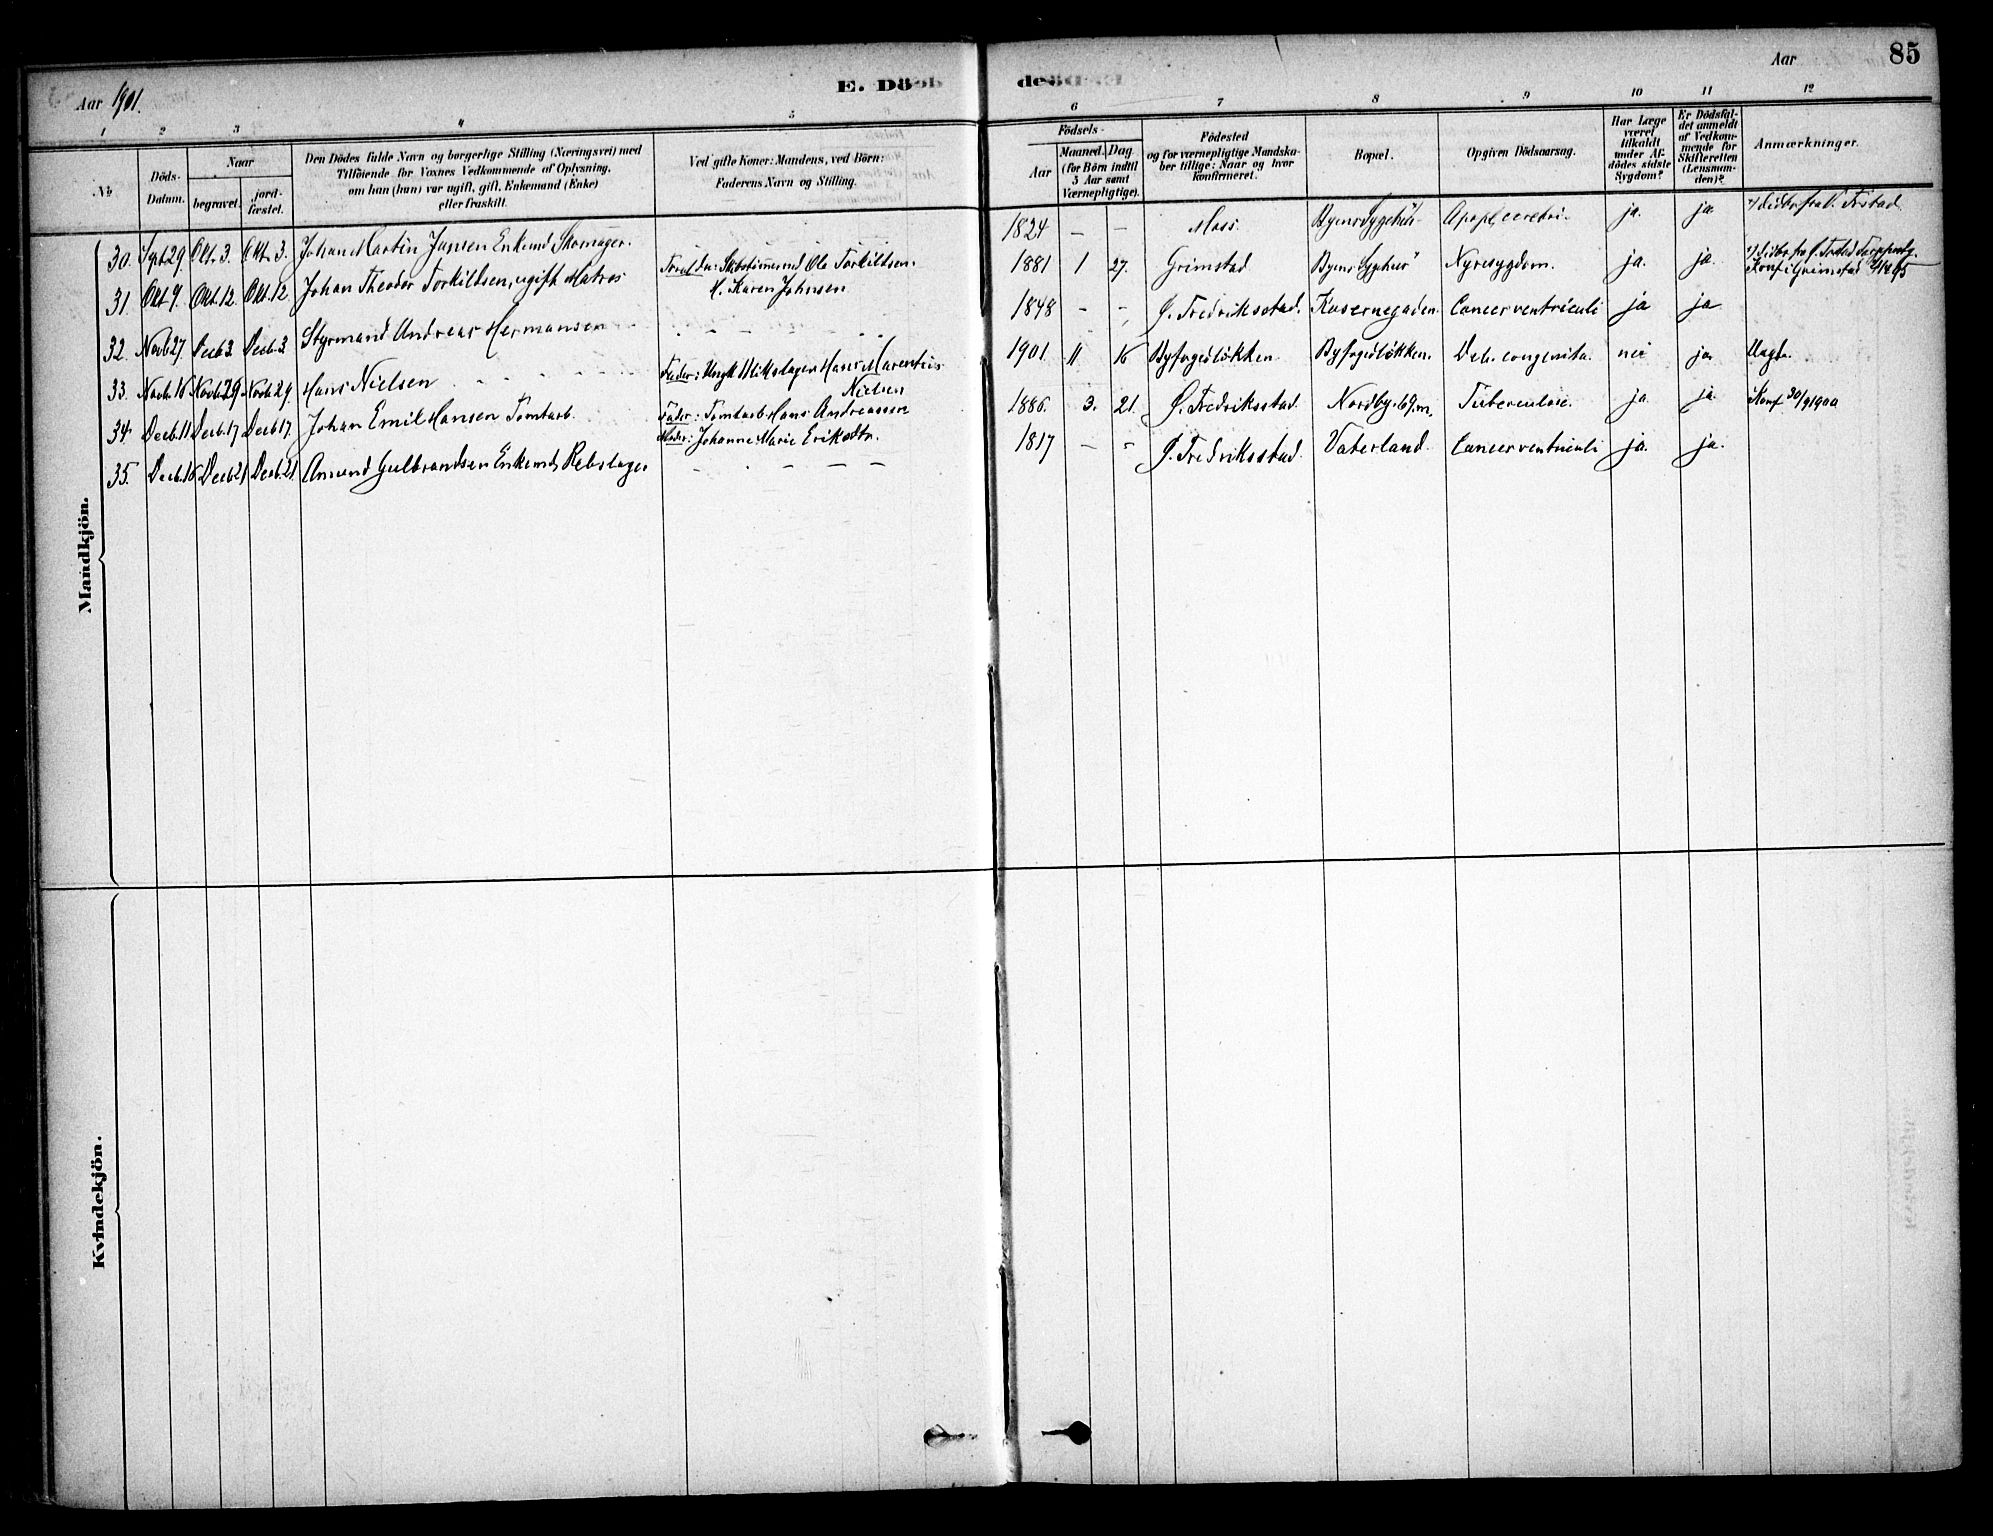 Aar 1901.
E. Döde
Aar
85
1 2 3 4 5 6 7 8 9 10 11 12
No
Döds-Datum.
Naar
begravet.
jordfæstet.
Den Dödes fulde Navn og borgerlige Stilling (Næringsvei) med
Tilföiende for Voxnes Vedkommende af Oplysning,
om han (hun) var ugift, gift, Enkemand (Enke)
eller fraskilt.
Ved gifte Koner: Mandens, ved Börn:
Faderens Navn og Stilling.
Födsels-
Aar
Maaned. Dag
(for Börn indtil
5 Aar samt
Værnepligtige).
Födested
og for værnepligtige Mandska-
ber tillige: Naar og hvor
konfirmeret.
Bopæl.
Opgiven Dödsaarsag.
Har Læge
været
tilkaldt
under Af-
dödes sidste
Sygdom?
Er Dödsfal-
det anmeldt
af Vedkom-
mende for
Skifteretten
(Lensman-
den)?
Anmærkninger.
Mandkjön.
30. Sept 29. Okt. 3. Okt. 3. Johan Martin Jansen Enkemd Skomager. 1824 — — Moss. Byens Sygehus Apopl. cerebri ja. ja
31. Okt. 9. Okt. 12. Okt. 12. Johan Theodor Torkildsen, ugift Matros
Ole Torkildsen.
M. Karen Johnsen
1881 1 27. Grimstad Byens Syghus Nyresygdom. ja. ja.
Konf i Grimstad
32. Novb 27. Decb 3. Decb. 3. Styrmand Andreas Hermansen - - - - 1848 - - Ø. Fredriksstad. Kasernegaden. Cancer ventriculi ja ja
33. Novb. 16 Novb 29 Novb. 29. Hans Nielsen - - - -
Fader: Ungk Blikslager Hans Marentius
Nielsen
1901. 11 16 Byfogedløkken. Byfogedløkken. Deb. congenita. nei ja. Uægte.
34. Decb. 11 Decb. 17 Decb 17. Johan Emil Hansen Tomtarb.
Fader: Tomtarb. Hans Andreassen
Moder: Johanne Marie Eriksdtr.
1886. 3. 21. Ø. Fredriksstad. Nordby i Glm. Tuberculose. ja. ja. Konf 30/9 1900
35. Decb. 16 Decb 21 Decb. 21. Amund Gulbrandsen Enkemd, Rebslager - - - - 1817 — - Ø. Fredriksstad. Vaterland. Cancer ventriculi ja. ja.
Kvindekjön.